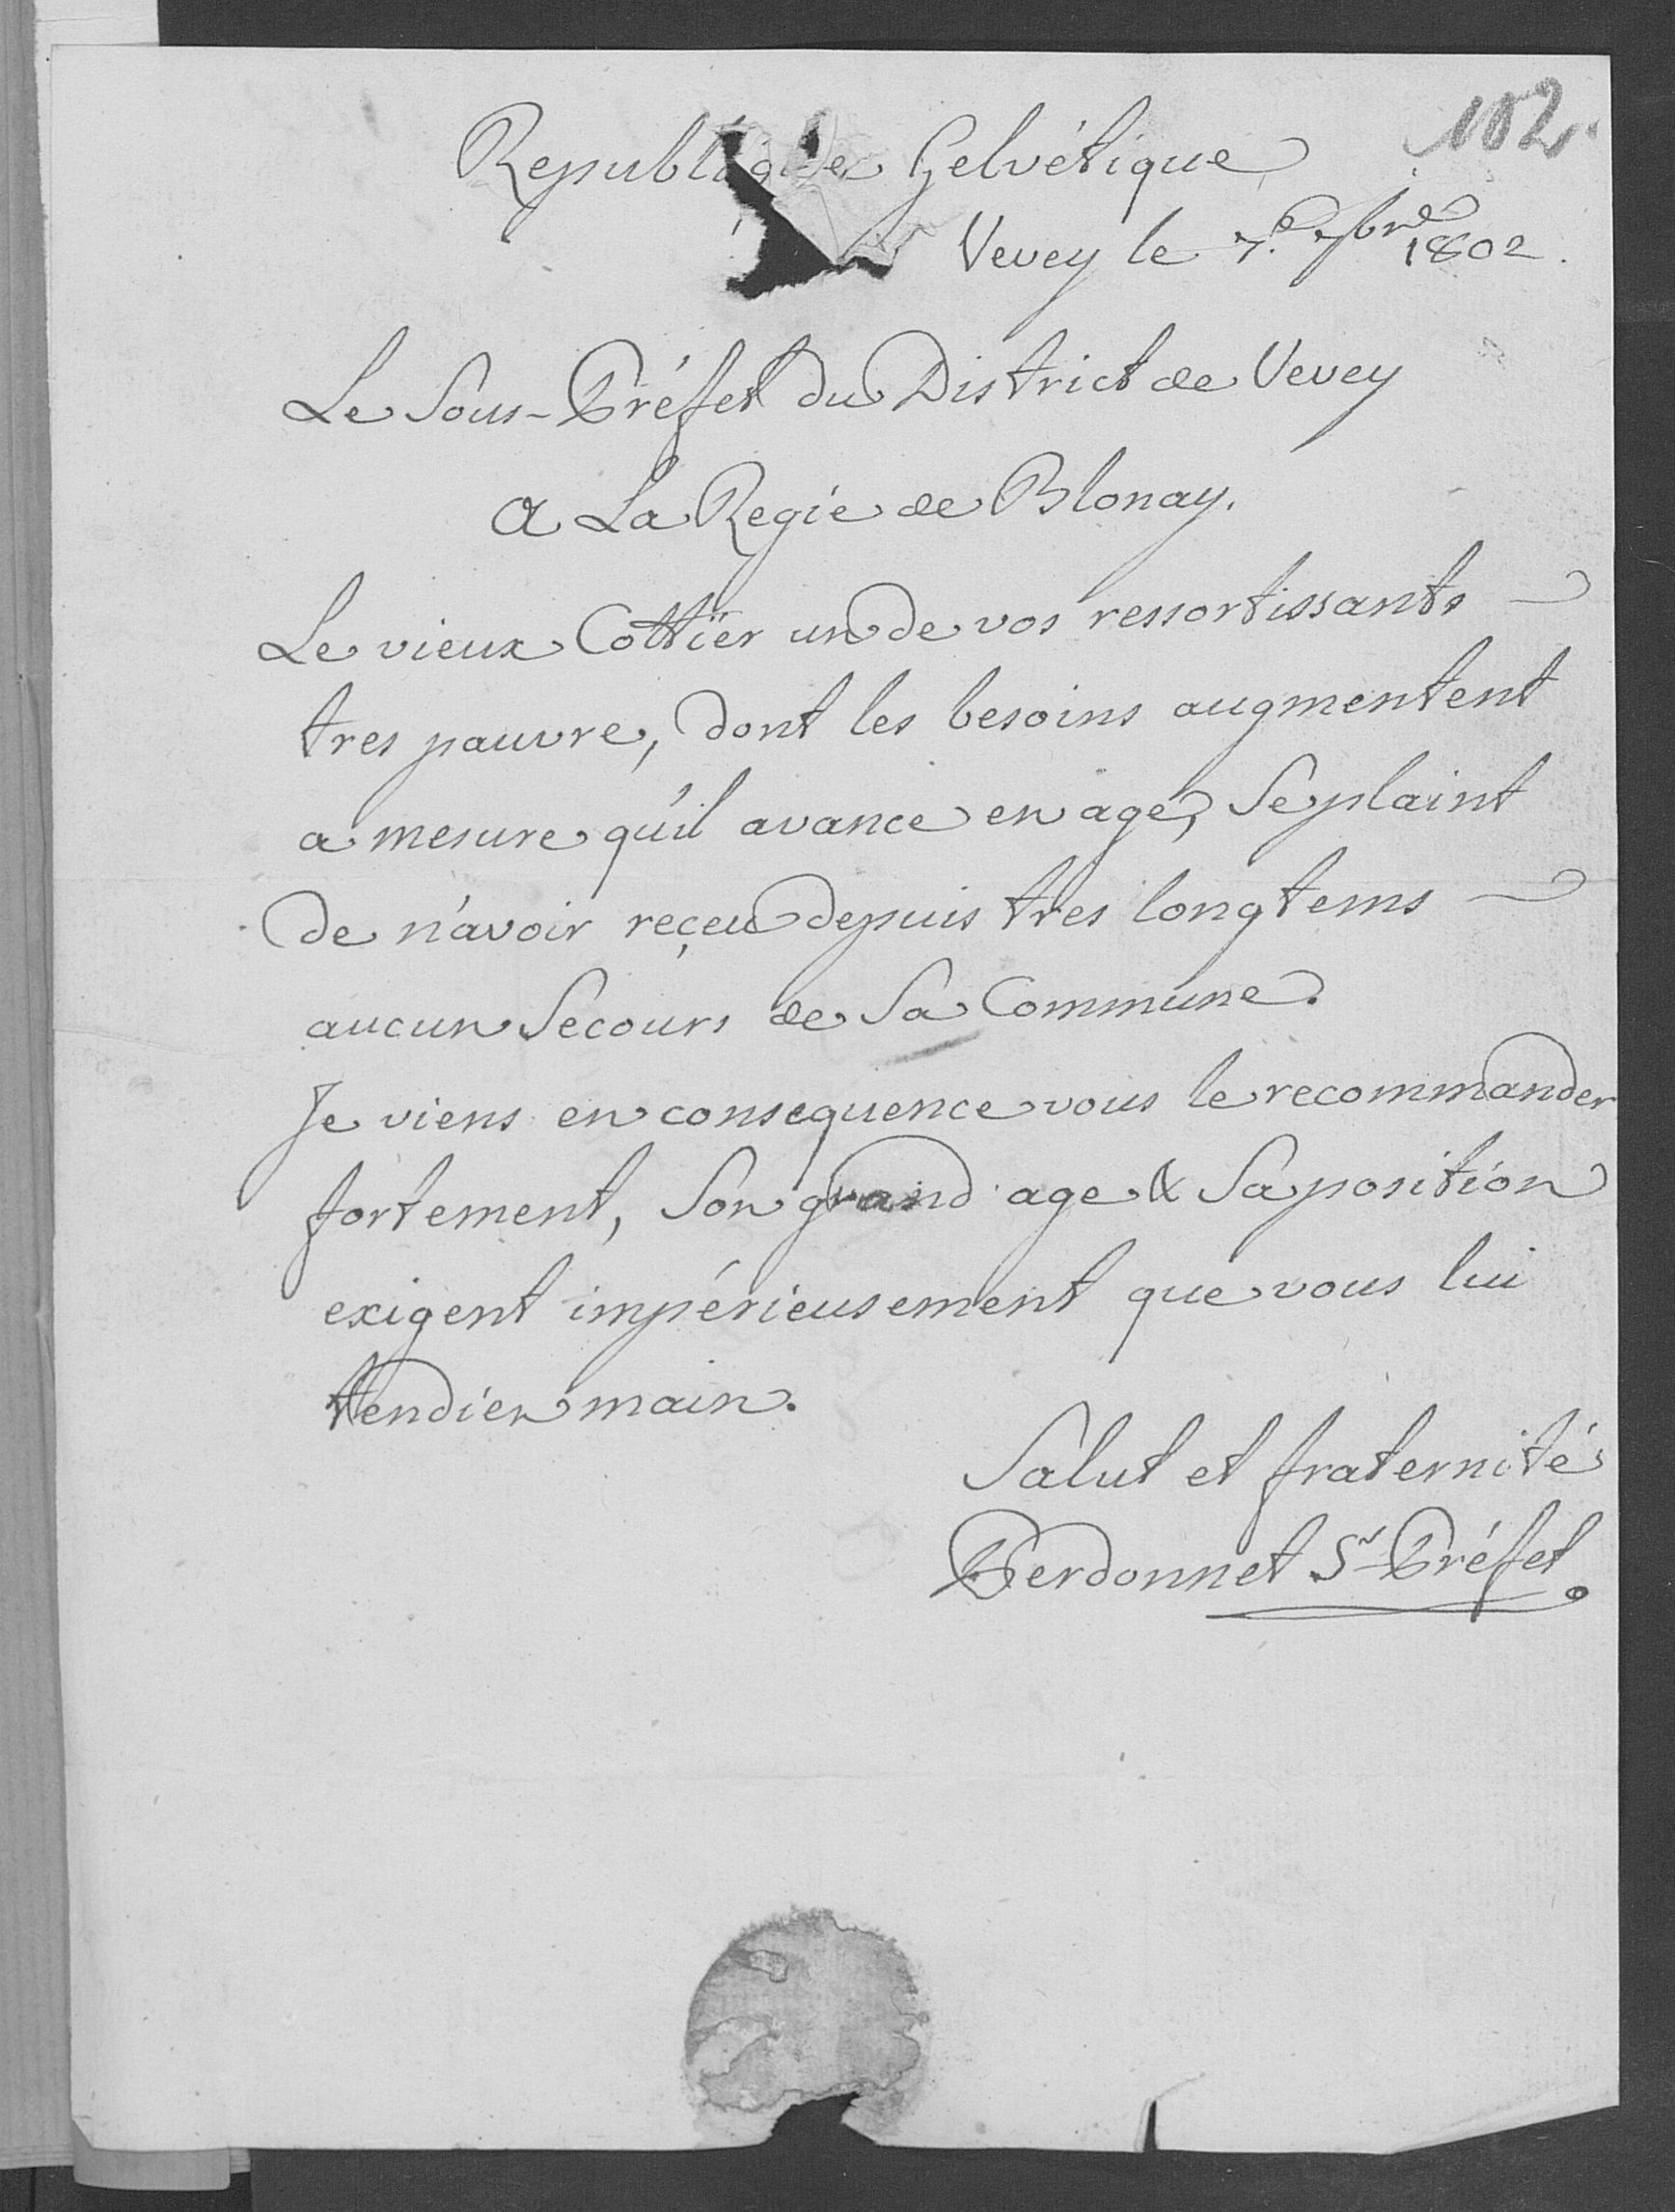 102.
Republique Helvétique
Vevey le 7.e 7bre 1802.
Le Sous-Préfet du District de Vevey
A La Regie de Blonay.
Le vieux Cottier un de vos ressortissants
tres pauvre, dont les besoins augmentent
a mesure qu'il avance en age, Se plaint
de n'avoir reçeu depuis tres longtems
aucun Secours de Sa Commune.
Je viens en consequence vous le recommander
fortement, Son grand age & Sa position
exigent impérieusement que vous lui
tendiez main.
Salut et fraternité
Perdonnet Ss-Préfet